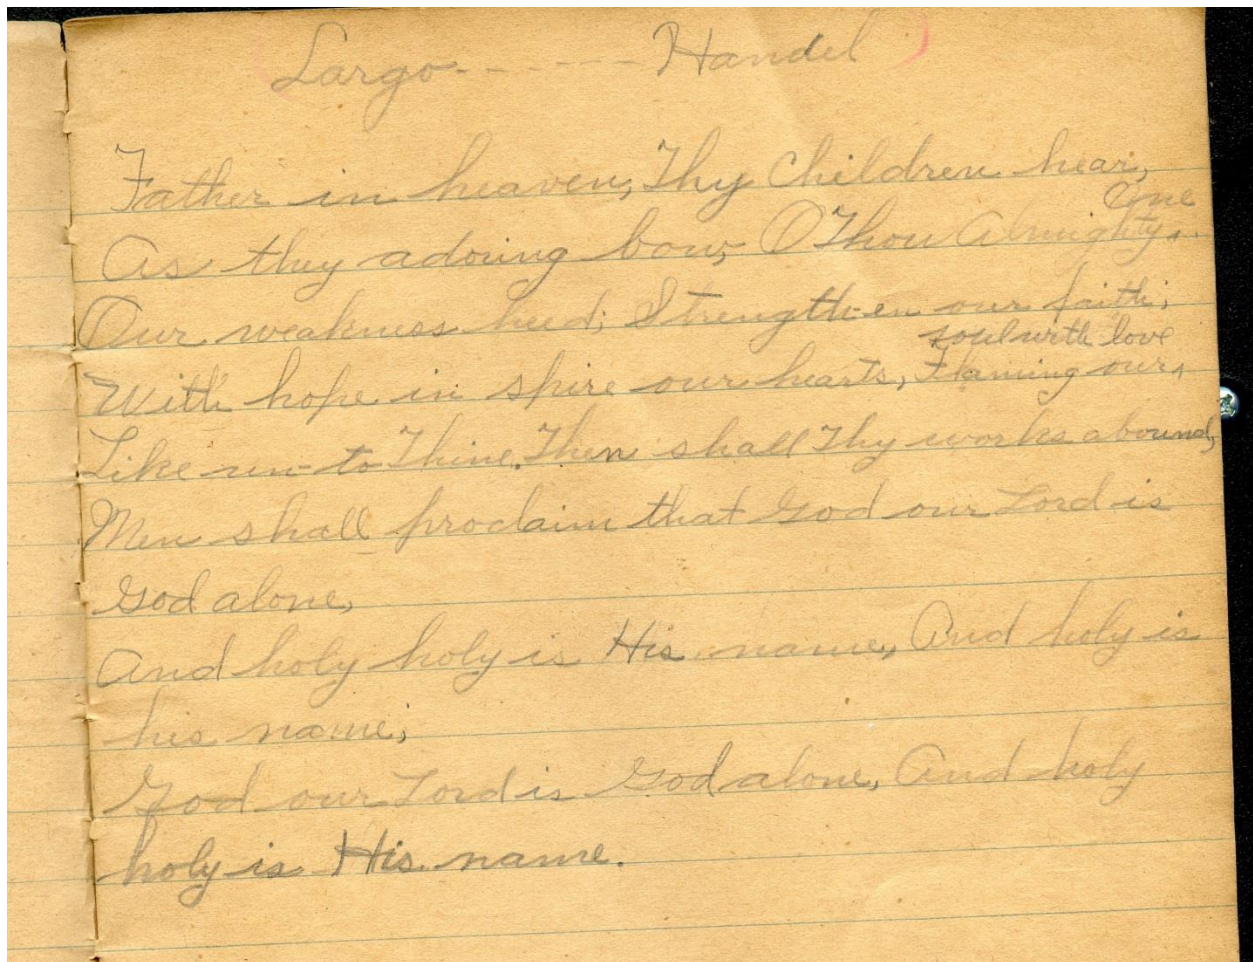 (Largo------Handel)
Father in heaven, Thy Children hear,
As they adoring bow, O Thou Almighty One
Our weakness heed; Strength-en our faith;
With hope in spire our hearts, Flaming our soul with love
Like un-to Thine. Then shall Thy works abound,
Men shall proclaim that God our Lord is
God alone,
And holy holy is His name, And holy is
his name;
God our Lord is God alone, And holy
holy is His name.